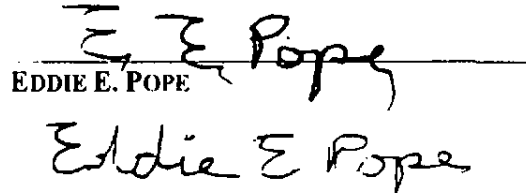 E, E, Pope
EDDIE E. POPE
Eddie E Pope